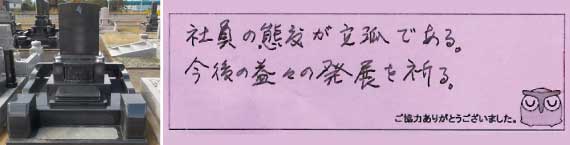 社員の態度が立派である。
今後の益々の発展を祈る。
ご協力ありがとうございました。